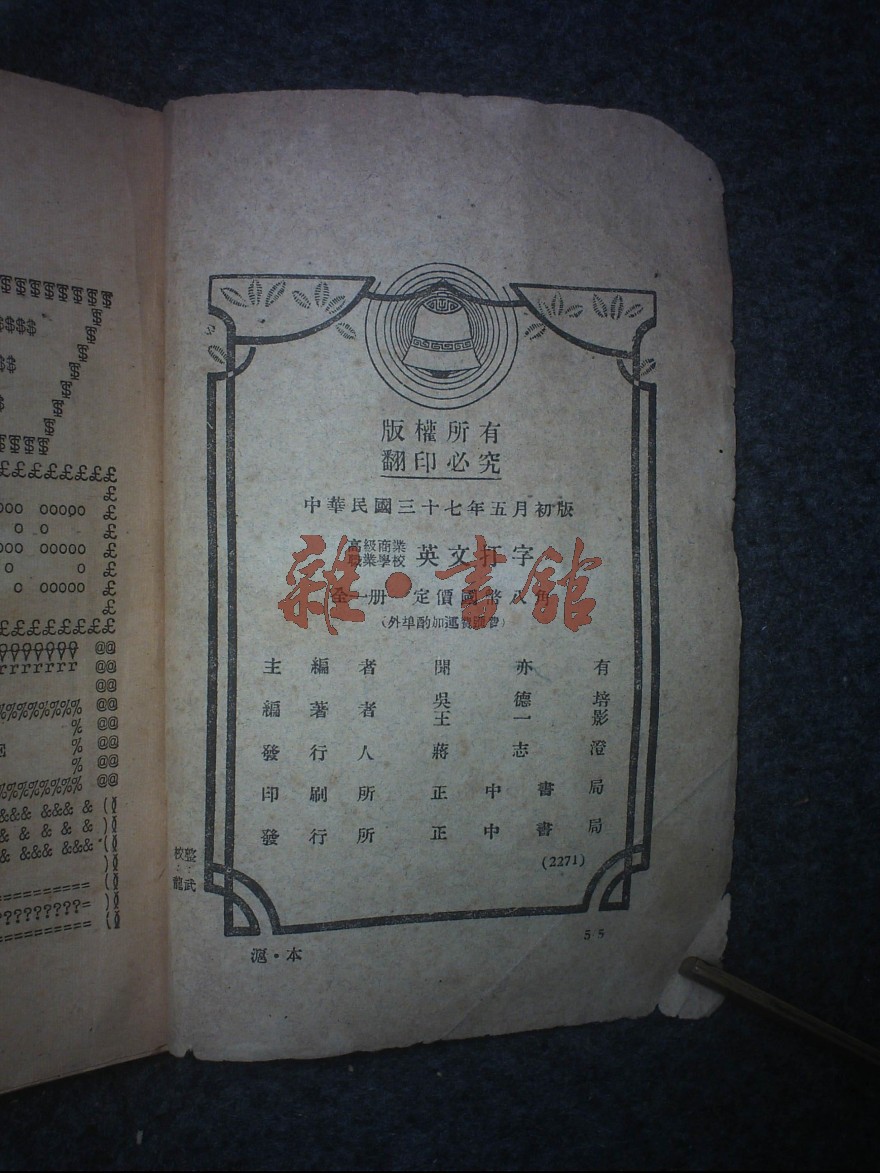 版權所有
翻印必究
中華民國三十七年五月初版
高級商業
職業學校 英文打字
全一册 定價國幣八角
(外埠酌加運費匯費)
主編者 聞亦有
編著者 吳德培
王一影
發行人 蔣志澄
印刷所 正中書局
發行所 正中書局
(2271)
校整
: :
龍武
滬·本
5/5
雜·書館
$$$$$$$$
$$$$
$$
$
$$$$$
£££££££££
£
ooo ooooo £
o o £
ooo ooooo £
o o £
o ooooo £
£
£££££££££
rrrrrrrr @@
@@
%%%%%%%% @@
% @@
% @@
%%%%%%%% @@
&&& &&& &
& & & & &
& &&& &&&
==========
?????????=
==========